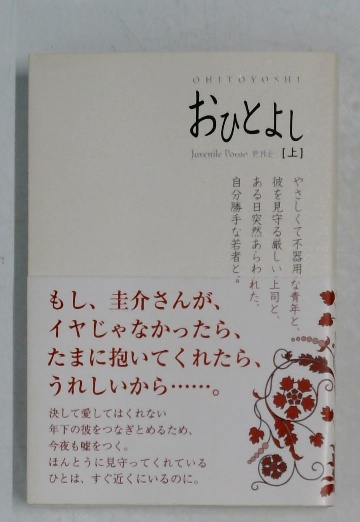 OHITOYOSHI
おひとよし
Juvenile Posse
[上]
やさしくて不器用な青年と、
彼を見守る厳しい上司と、
ある日突然あらわれた、
自分勝手な若者と。
もし、圭介さんが、
イヤじゃなかったら、
たまに抱いてくれたら、
うれしいから……。
決して愛してはくれない
年下の彼をつなぎとめるため、
今夜も嘘をつく。
ほんとうに見守ってくれている
ひとは、すぐ近くにいるのに。